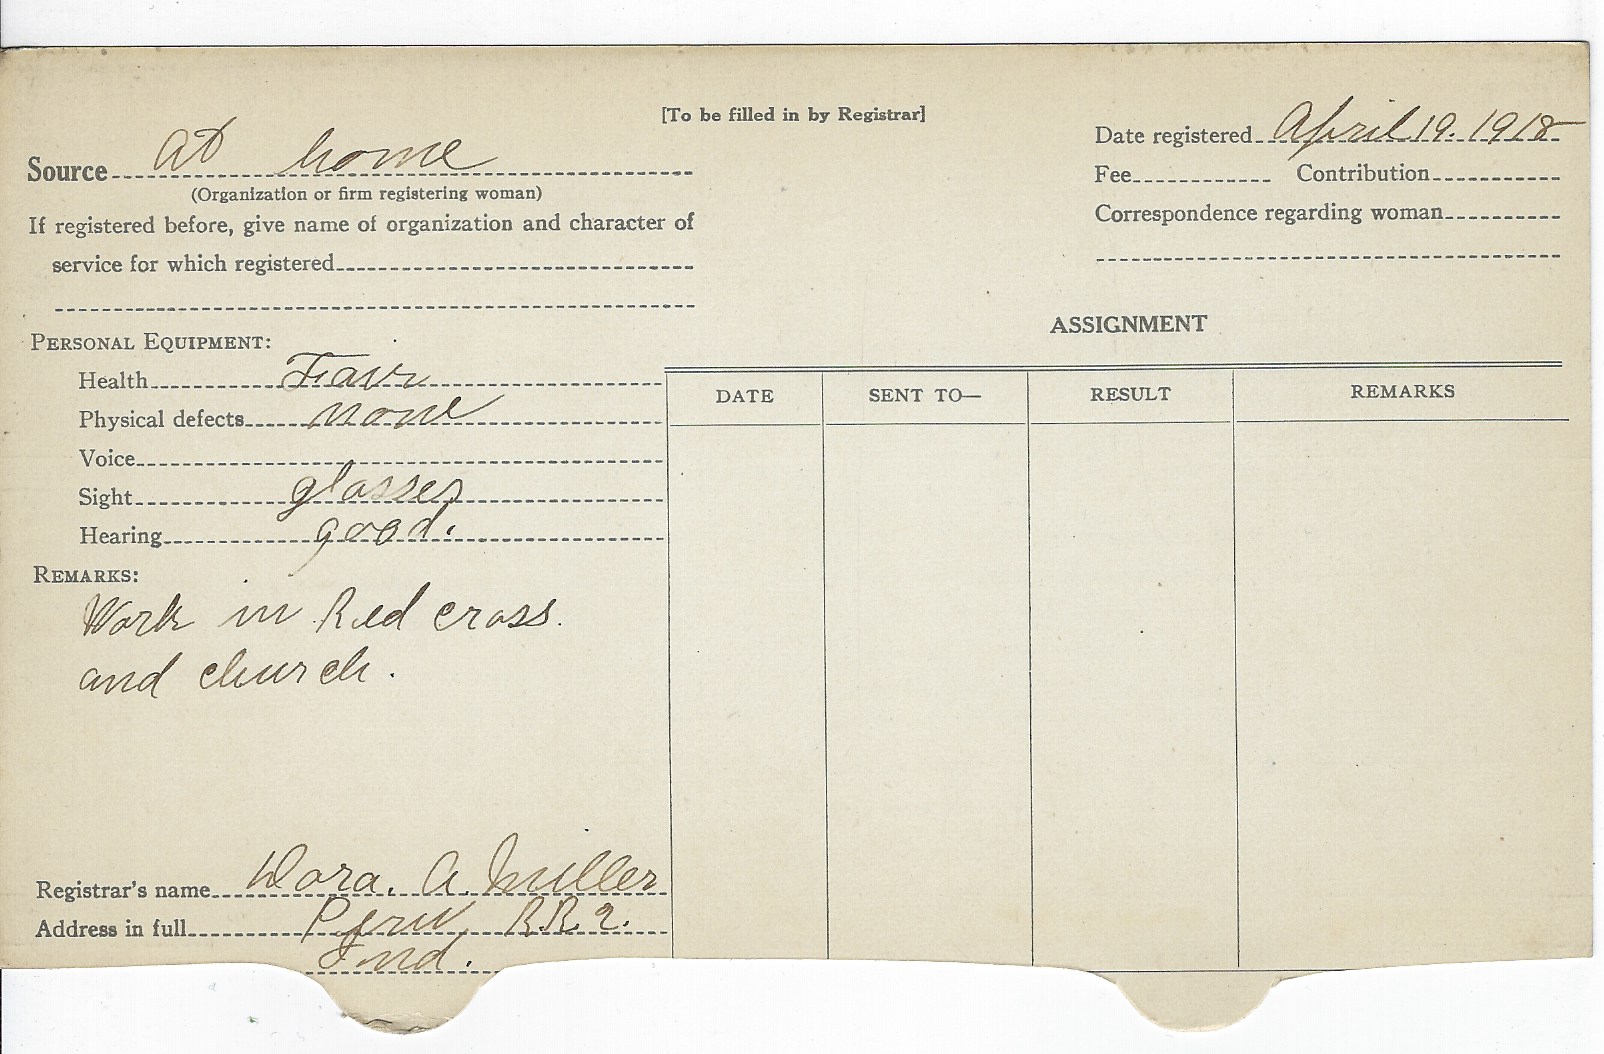 [To be filled in by Registrar]
Source at home
(Organization or firm registering woman)
If registered before, give name of organization and character of
service for which registered
Date registered April 19. 1918
Fee Contribution
Correspondence regarding woman
PERSONAL EQUIPMENT:
Health Fair
Physical defects none
Voice
Sight glasses
Hearing good.
REMARKS:
Work in Red cross.
and church.
Registrar's name Dora. A. Miller
Address in full Peru R.R. 2.
Ind.
ASSIGNMENT
DATE SENT TO— RESULT REMARKS